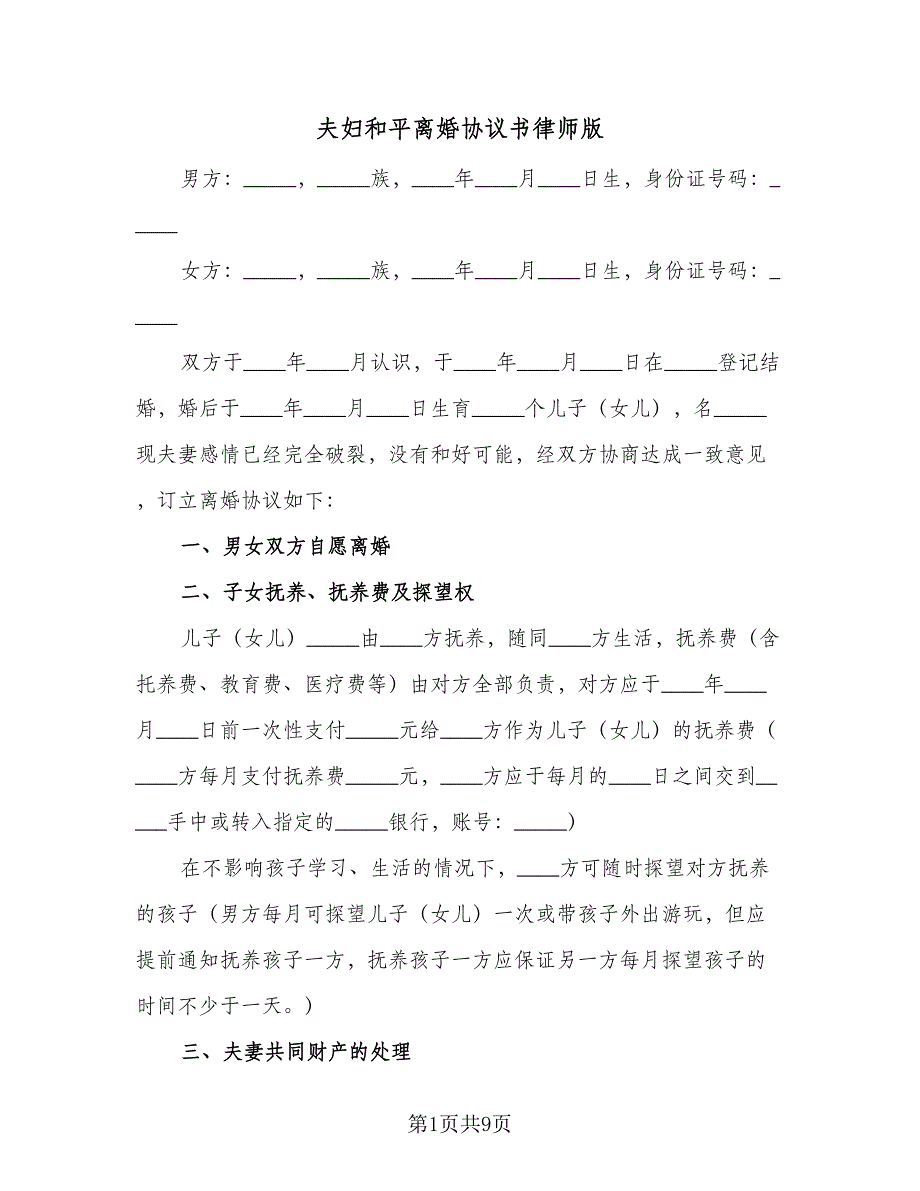 夫妇和平离婚协议书律师版
男方：_____，_____族，____年____月____日生，身份证号码：_
____
女方：_____，_____族，____年____月____日生，身份证号码：_
____
双方于____年____月认识，于____年____月____日在_____登记结
婚，婚后于____年____月____日生育_____个儿子（女儿），名_____
现夫妻感情已经完全破裂，没有和好可能，经双方协商达成一致意见
，订立离婚协议如下：
一、男女双方自愿离婚
二、子女抚养、抚养费及探望权
儿子（女儿）_____由____方抚养，随同____方生活，抚养费（含
托养费、教育费、医疗费等）由对方全部负责，对方应于____年____
月____日前一次性支付_____元给____方作为儿子（女儿）的抚养费（
____方每月支付抚养费_____元，____方应于每月的____日之间交到__
___手中或转入指定的_____银行，账号：_____）
在不影响孩子学习、生活的情况下，____方可随时探望对方抚养
的孩子（男方每月可探望儿子（女儿）一次或带孩子外出游玩，但应
提前通知抚养孩子一方，抚养孩子一方应保证另一方每月探望孩子的
时间不少于一天。）
三、夫妻共同财产的处理
第1页共9页